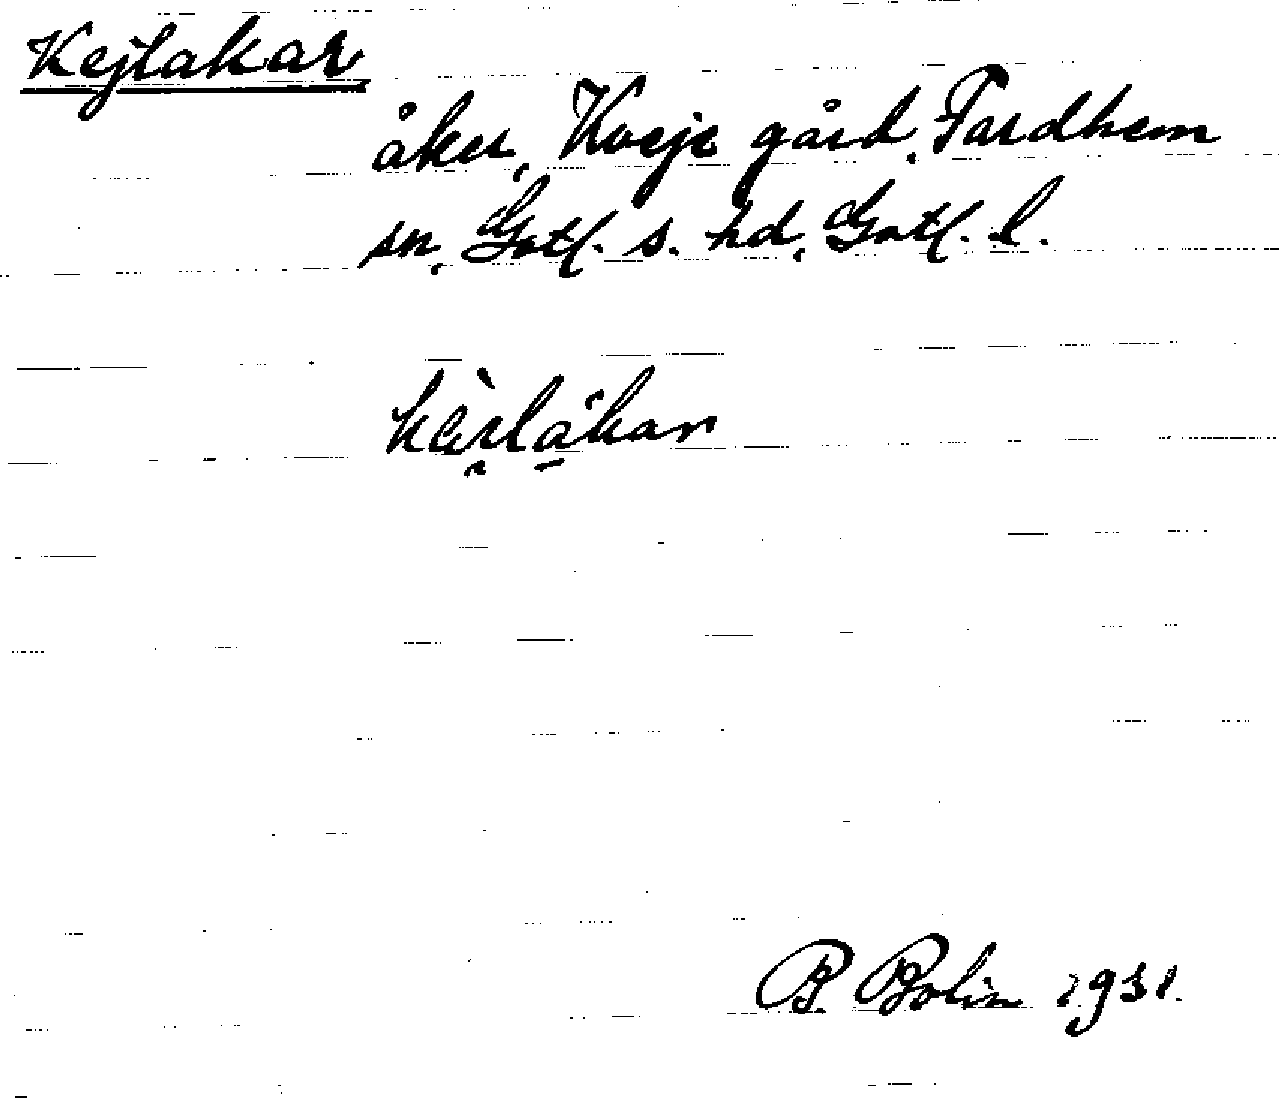 Kejlakar
åker, Kveje gård, Fardhem
sn, Gotl. s. hd, Gotl. l.
B. Bolin 1931.